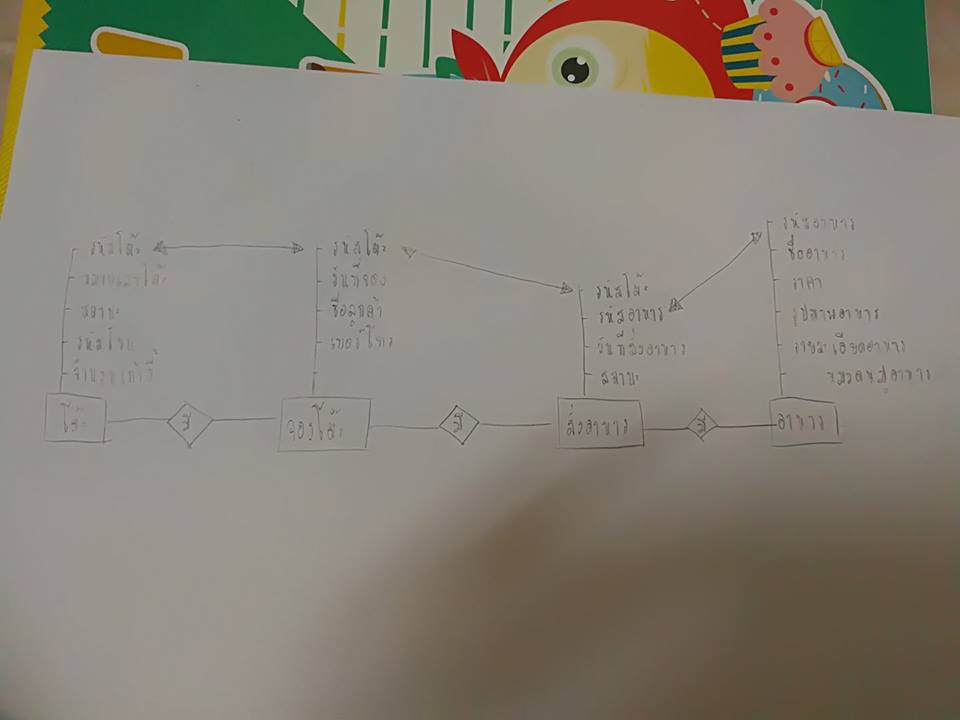 รหัสโต๊ะ
หมายเลขโต๊ะ
สถานะ
รหัสโซน
จำนวนเก้าอี้
โต๊ะ
มี
รหัสโต๊ะ
วันที่จอง
ชื่อลูกค้า
เบอร์โทร
จองโต๊ะ
มี
รหัสโต๊ะ
รหัสอาหาร
วันที่สั่งอาหาร
สถานะ
สั่งอาหาร
มี
รหัสอาหาร
ชื่ออาหาร
ราคา
รูปภาพอาหาร
รายละเอียดอาหาร
หมวดหมู่อาหาร
อาหาร